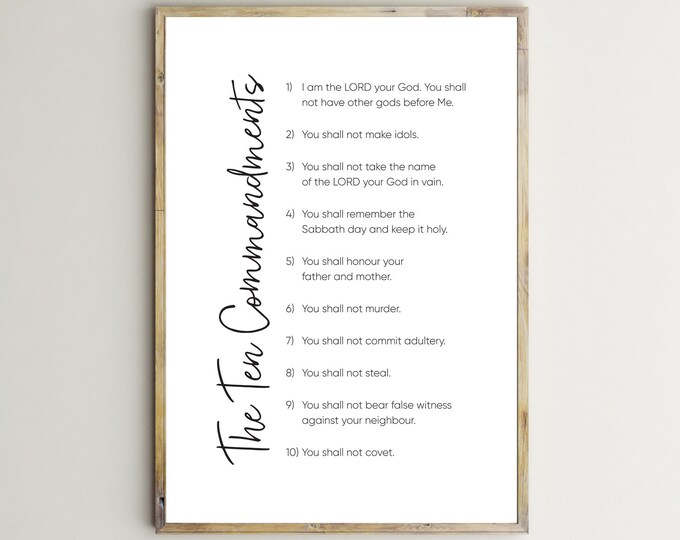 The Ten Commandments
1) I am the LORD your God. You shall
not have other gods before Me.
2) You shall not make idols.
3) You shall not take the name
of the LORD your God in vain.
4) You shall remember the
Sabbath day and keep it holy.
5) You shall honour your
father and mother.
6) You shall not murder.
7) You shall not commit adultery.
8) You shall not steal.
9) You shall not bear false witness
against your neighbour.
10) You shall not covet.